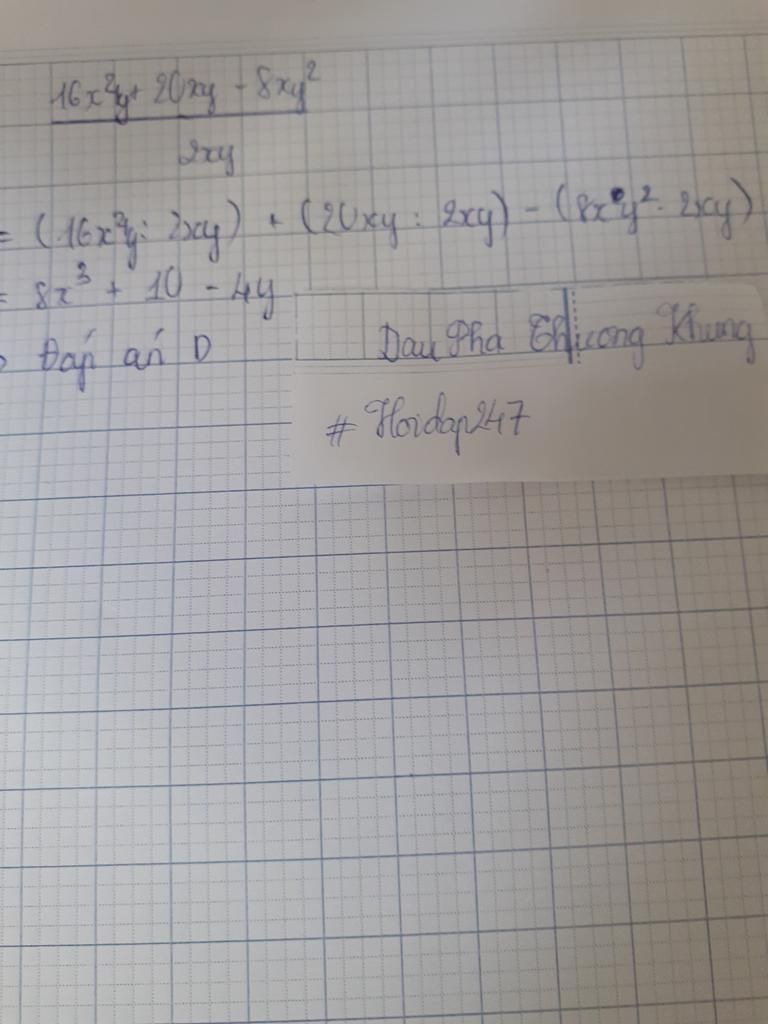 16x²y + 20xy - 8xy²
2xy
= (16x²y : 2xy) + (20xy : 2xy) - (8xy² : 2xy)
= 8x³ + 10 - 4y
Đáp án D
Dau Pha Thuong Khung
# Hoidap247